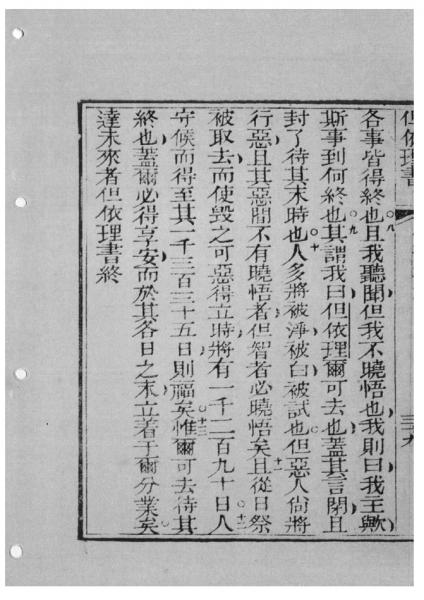 但依理書
三十九
各事皆得終也○八且我聽聞但我不曉悟也我則曰我主歟
斯事到何終也○九其謂我曰但依理爾可去也蓋其言閉且
封了待其末時也○十人多將被淨被白被試也但惡人尙將
行惡且其惡間不有曉悟者但智者必曉悟矣○十一且從日祭
被取去而使毀之可惡得立時將有一千二百九十日○十二人
守候而得至其一千三百三十五日則福矣○十三惟爾可去待其
終也蓋爾必得享安而於其各日之末立著于爾分業矣
達未來者但依理書終